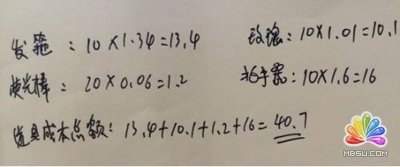 发箍：10×1.34=13.4
玫瑰：10×1.01=10.1
荧光棒：20×0.06=1.2
拍手器：10×1.6=16
道具成本总额：13.4+10.1+1.2+16=40.7
MBSU.COM